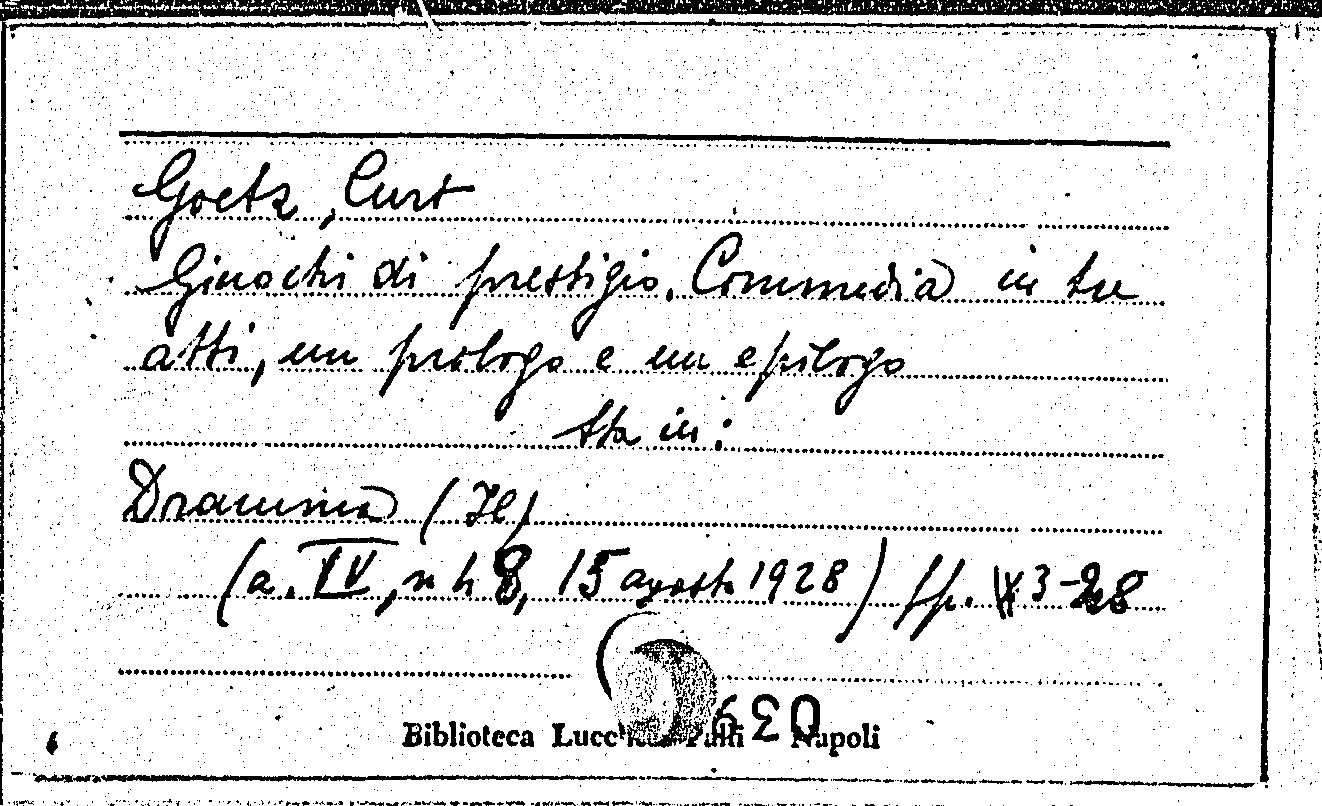 Goetz, Curt
Giuochi di prestigio. Commedia in tre
atti, un prologo e un epilogo
Sta in:
Dramma (Il)
(a. IV, n 48, 15 agosto 1928) pp. 3-28
Biblioteca Napoli